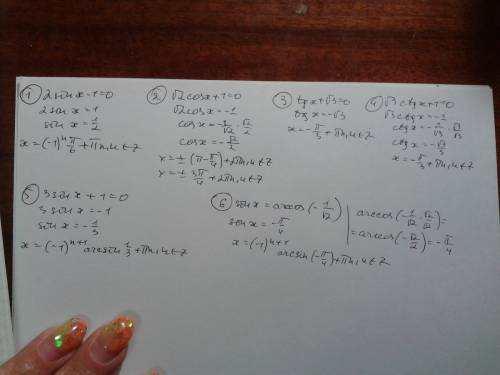 ① 2sin x-1=0
2sin x=1
sin x=1/2
x=(-1)ⁿ π/6+πn, n∈Z
② √2 cos x+1=0
√2 cos x=-1
cos x=-1/√2·√2/√2
cos x=-√2/2
x=±(π-π/4)+2πn, n∈Z
x=± 3π/4+2πn, n∈Z
③ tg x+√3=0
tg x=-√3
x=-π/3+πn, n∈Z
④ √3 ctg x+1=0
√3 ctg x=-1
ctg x=-1/√3·√3/√3
ctg x=-√3/3
x=-π/3+πn, n∈Z
⑤ 3sin x+1=0
3 sin x=-1
sin x=-1/3
x=(-1)ⁿ⁺¹ arcsin 1/3+πn, n∈Z
⑥ sin x=arccos(-1/√2)
sin x=-π/4
x=(-1)ⁿ⁺¹
arcsin(-π/4)+πn, n∈Z
arccos(-1/√2·√2/√2)=
=arccos(-√2/2)=-π/4